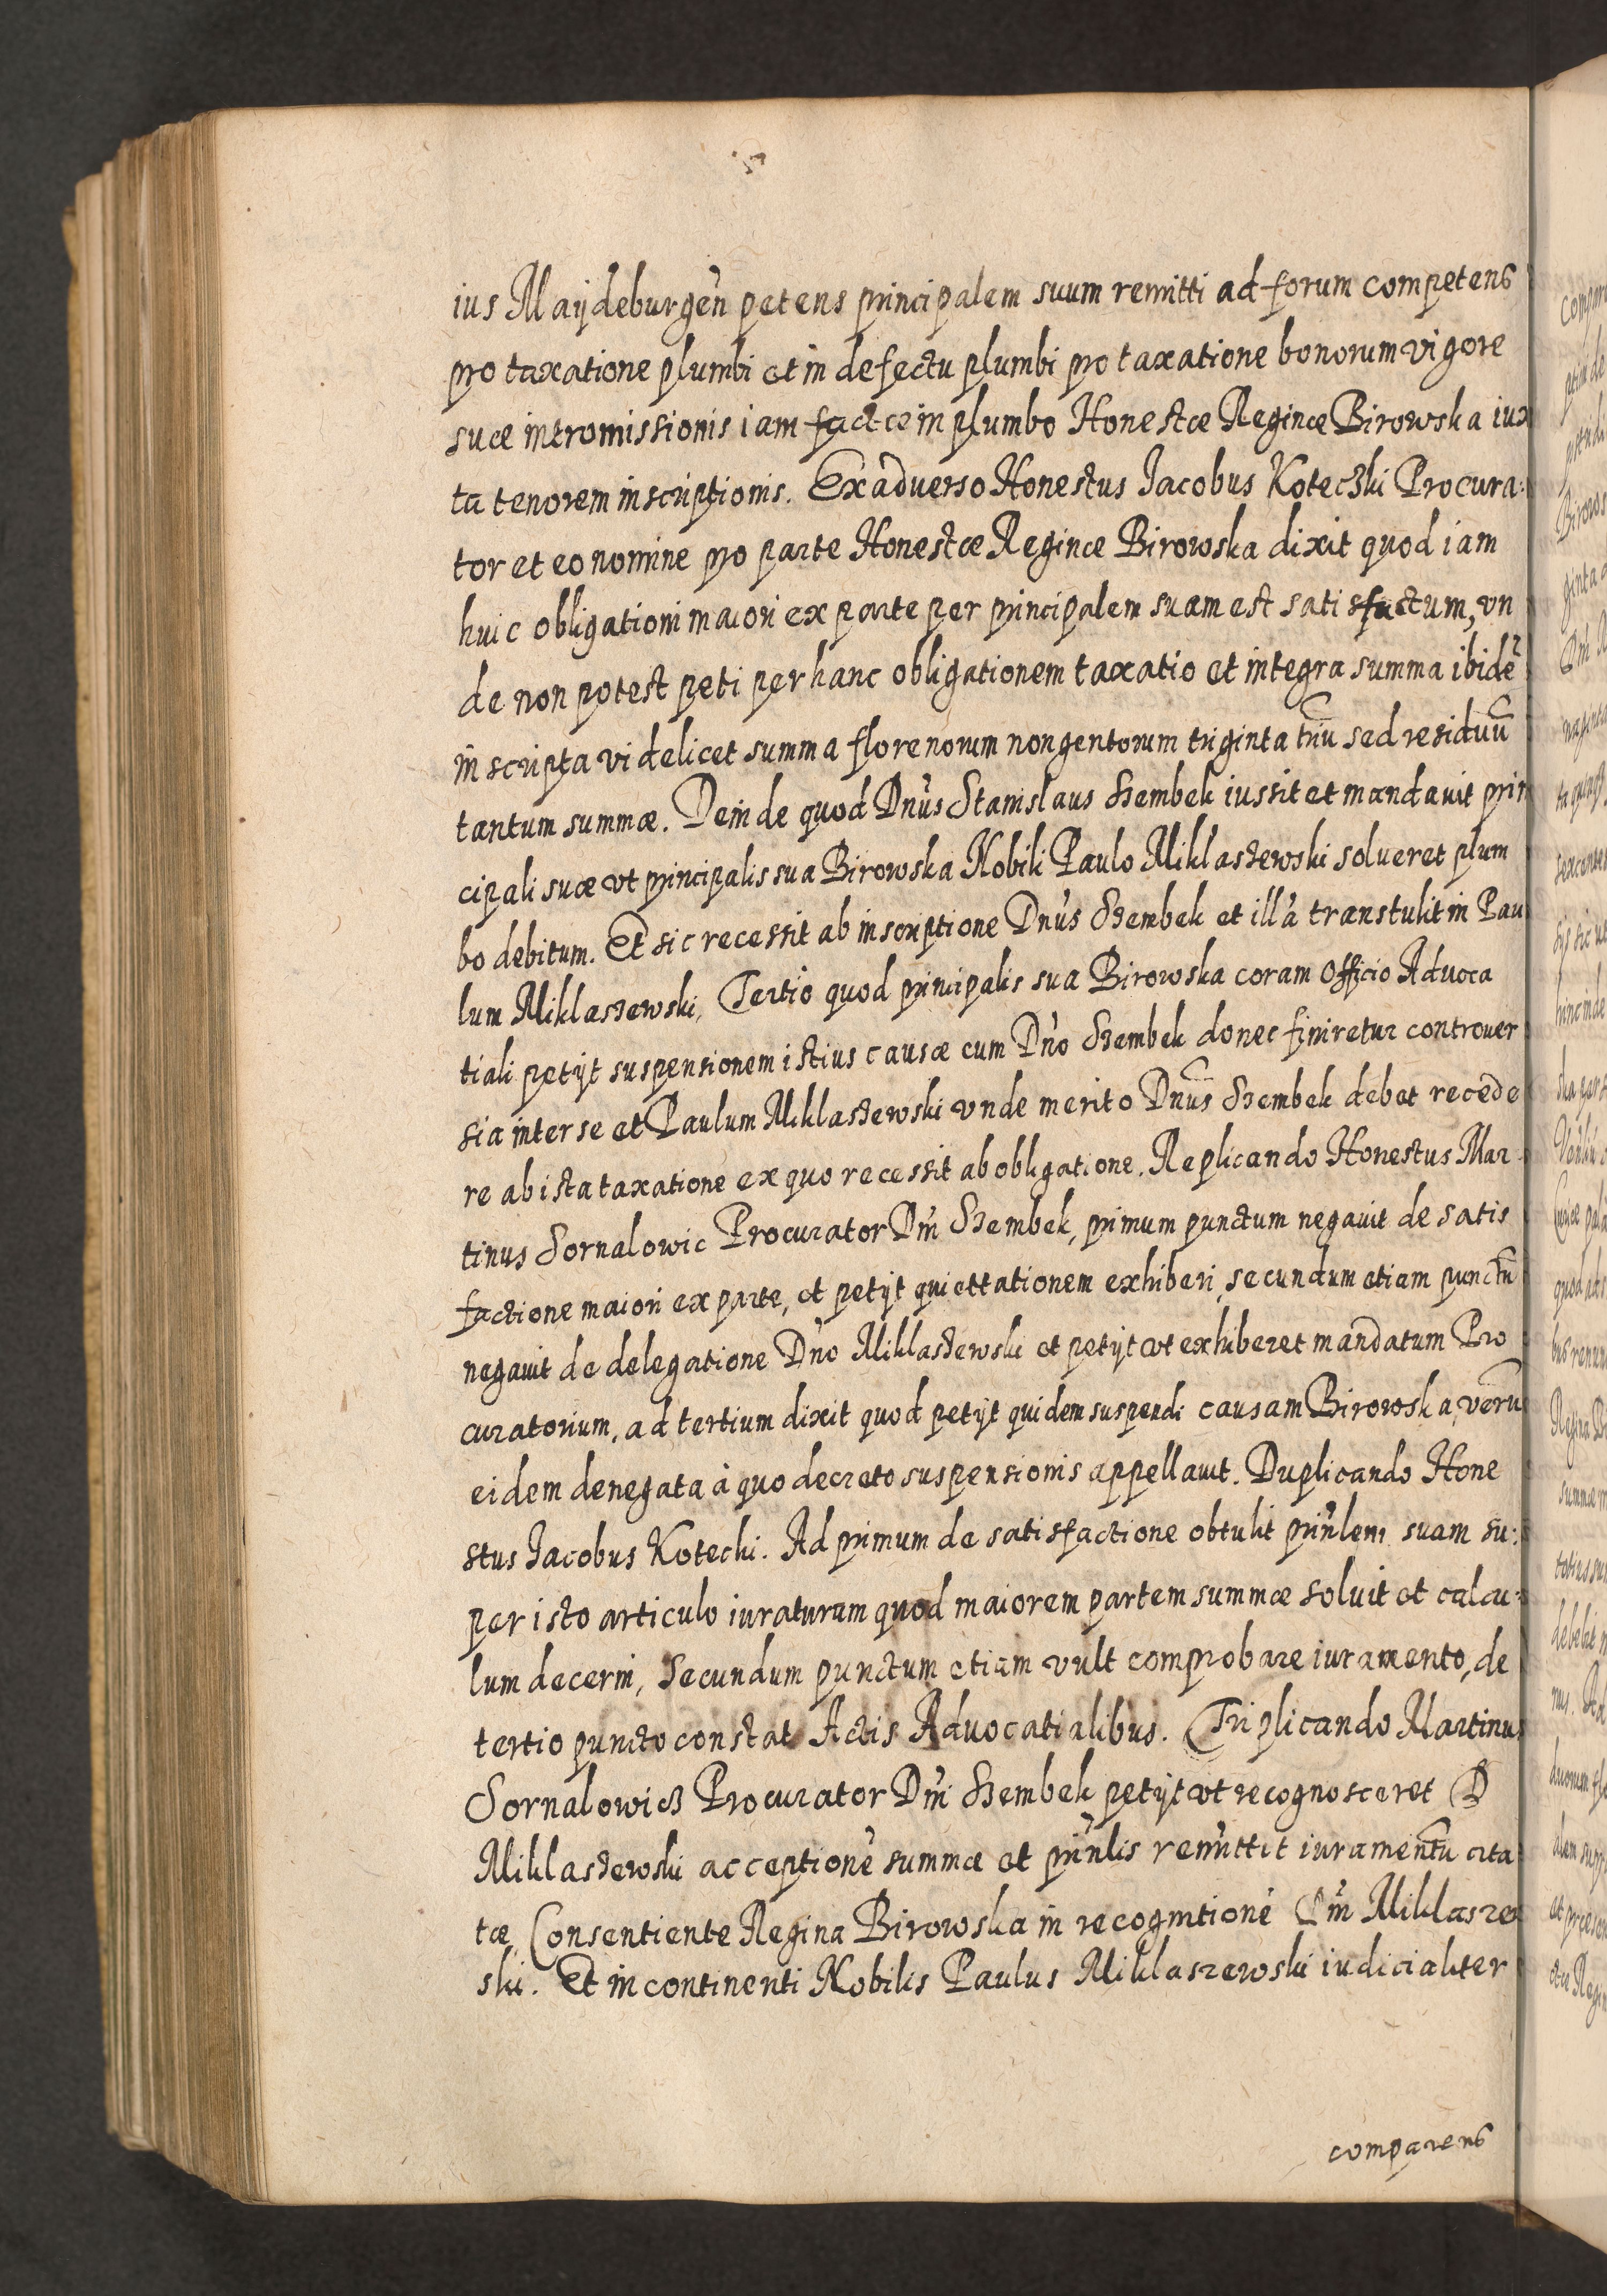 ius Maÿdeburgen̄ petens principalem suum remitti ad forum competens
pro taxatione plumbi et in defectu plumbi pro taxatione bonorum vigore
suæ intromissionis iam factæ in plumbo Honestæ Reginæ Birowska iux
ta tenorem inscriptionis. Ex adverso Honestus Jacobus Koteczki Procura:
tor et eo nomine pro parte Honestæ Reginæ Birowska dixit quod iam
huic obligationi maiori ex parte per principalem suam est satisfactum, vn
de non potest peti per hanc obligationem taxatio et integra summa ibidē
inscripta videlicet summa florenorum nongentorum triginta triū sed residuū
tantum summæ. Deinde quod Dn̄us Stanislaus Szembek iussit et mandauit prin
cipali suæ vt principalis sua Birowska Nobili Paulo Miklaszewski solueret plum
bo debitum. Et sic recessit ab inscriptione Dn̄us Szembek et illā transtulit in Pau
lum Miklaszewski, Tertio quod principalis sua Birowska coram officio Aduoca
tiali petÿt suspensionem istius causæ cum Dn̄o Szembek donec finiretur controuer
sia inter se et Paulum Miklaszewski vnde merito Dn̄us Szembek debet recede
re ab ista taxatione ex quo recessit ab obligatione. Replicando Honestus Mar
tinus Sornalowic Procurator Dn̄i Szembek, primum punctum negauit de satis
factione maiori ex parte, et petÿt quiettationem exhiberi, secundum etiam punctū
negauit de delegatione Dn̄o Miklaszewski et petÿt vt exhiberet mandatum Pro
curatorium, ad tertium dixit quod petÿt quidem suspendi causam Birowska, verū
eidem denegata à quo decreto suspensionis appellauit. Duplicando Hone
stus Jacobus Kotecki. Ad primum de satisfactione obtulit prin̄lem suam su:
per isto articulo iuraturam quod maiorem partem summæ soluit et calcu:
lum decerni, Secundum punctum etiam vult comprobare iuramento, de
tertio puncto constat Actis Aduocatialibus. Triplicando Martinus
Sornalowicz Procurator Dn̄i Szembek petÿt vt recognosceret D
Miklaszewski acceptionē summæ et prin̄lis remittit iuramentū cita
tæ, Consentiente Regina Birowska in recognitionē Dn̄i Miklaszew
ski. Et in continenti Nobilis Paulus Miklaszewski iudicialiter
comparens